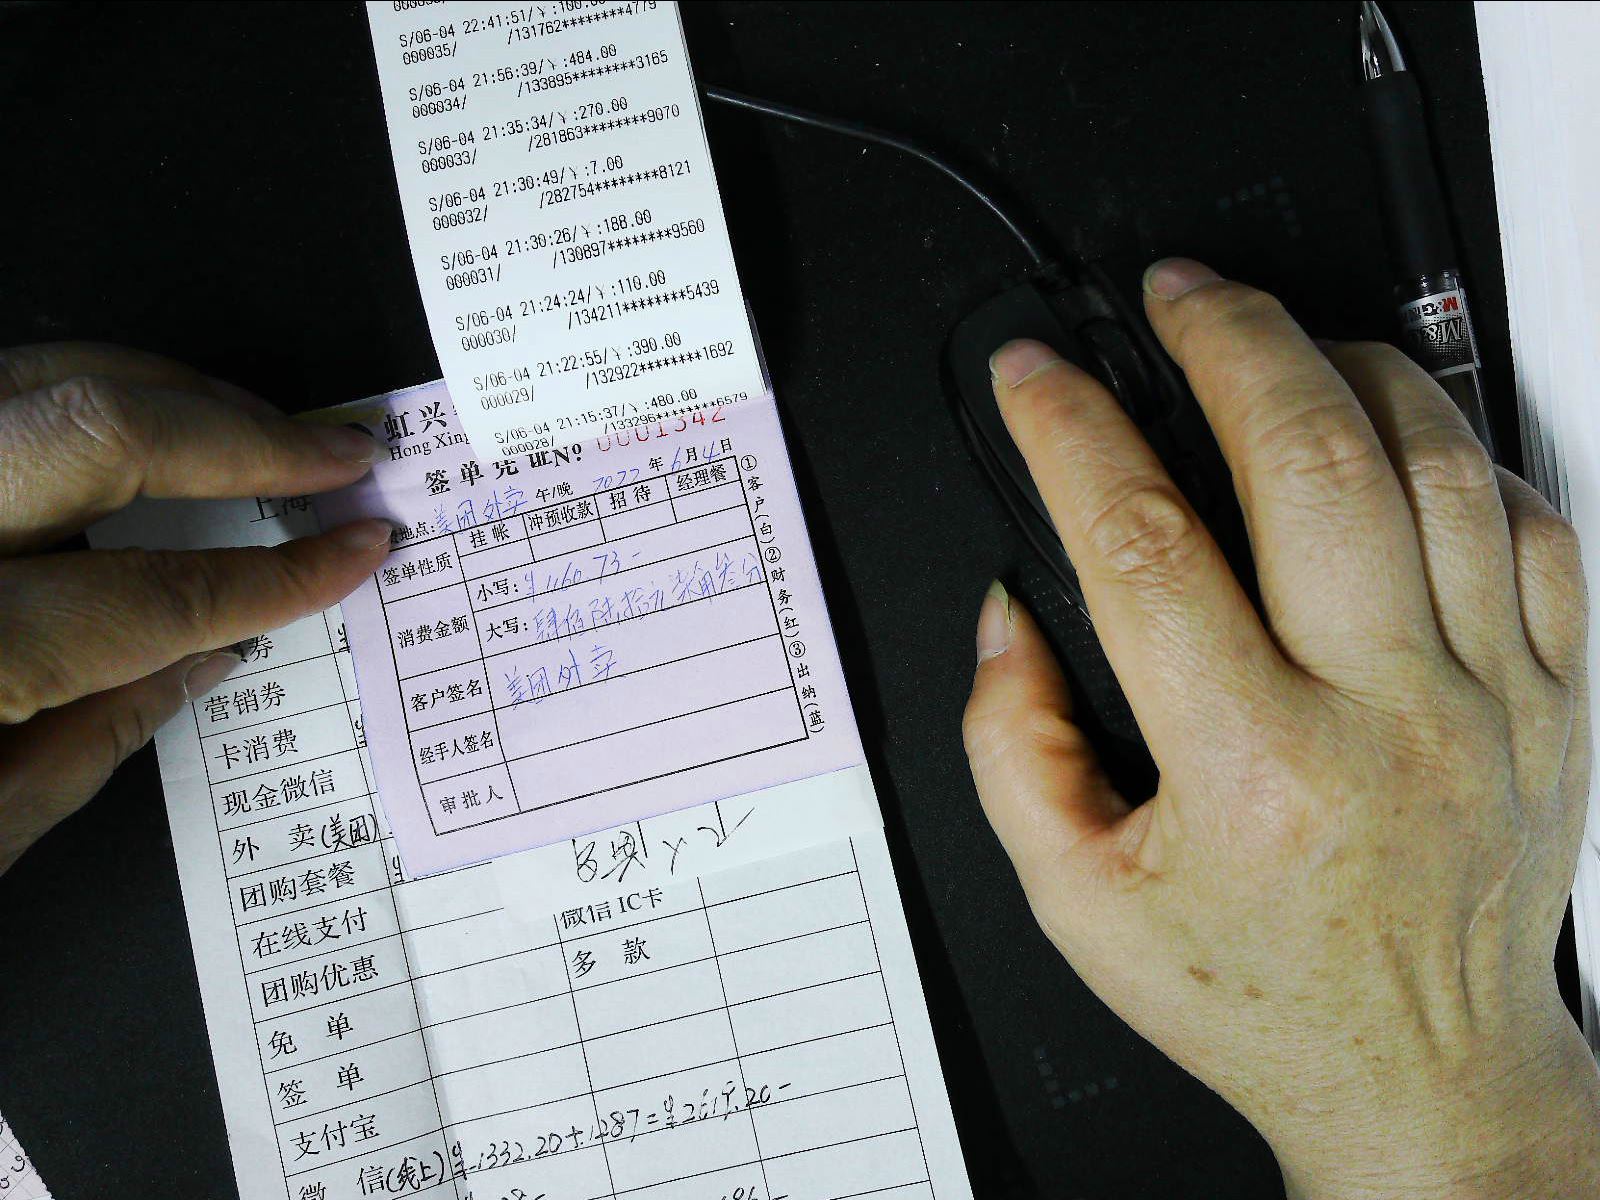 S/06-04 22:41:51/¥:100.00
000035/ /131762********4779
S/06-04 21:56:39/¥:484.00
000034/ /133895********3165
S/06-04 21:35:34/¥:270.00
000033/ /281863********9070
S/06-04 21:30:49/¥:7.00
000032/ /282754********8121
S/06-04 21:30:26/¥:188.00
000031/ /130897********9560
S/06-04 21:24:24/¥:110.00
000030/ /134211********5439
S/06-04 21:22:55/¥:390.00
000029/ /132922********1692
S/06-04 21:15:37/¥:480.00
000028/ /133296********6579
虹兴
Hong Xing
签单凭证No: 0001342
地点: 美团外卖 午/晚 2022年6月4日
签单性质 挂帐 冲预收款 招待 经理餐
消费金额 小写:
大写: 肆佰陆拾元柒角叁分
客户签名 美团外卖
经手人签名
审批人
①客户(白)②财务(红)③出纳(蓝)
上海
券
营销券
卡消费
现金微信
外 卖(美团)
团购套餐
在线支付 微信IC卡
团购优惠 多 款
免 单
签 单
支付宝
微 信(线上) ¥1332.20+1287=
M&G